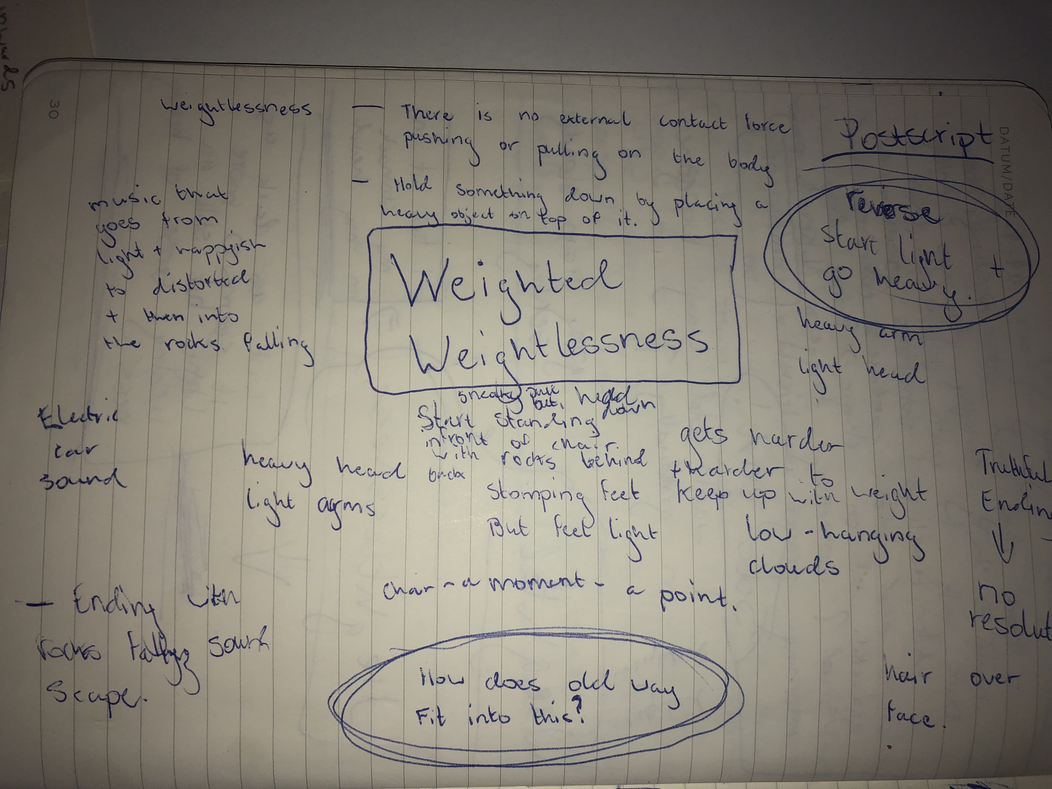 30
weightlessness — There is no external contact force
pushing or pulling on the body
— Hold something down by placing a
heavy object on top of it.
Postscript
DATUM/DATE
reverse
Start light +
go heavy.
heavy arm
light head
music that
goes from
light + happyish
to distorted
+ then into
the rocks falling
Weighted
Weightlessness
Start standing
infront of chair.
with rocks behind
back
Stomping feet
But feet light
gets harder
+ harder to
keep up with weight
low-hanging
clouds
Electric
car
sound
heavy head
light arms
Truthful
Ending
↓
no
resolut
chair - a moment - a point.
— Ending with
rocks falling sound
scape.
How does old way
Fit into this?
hair over
face.